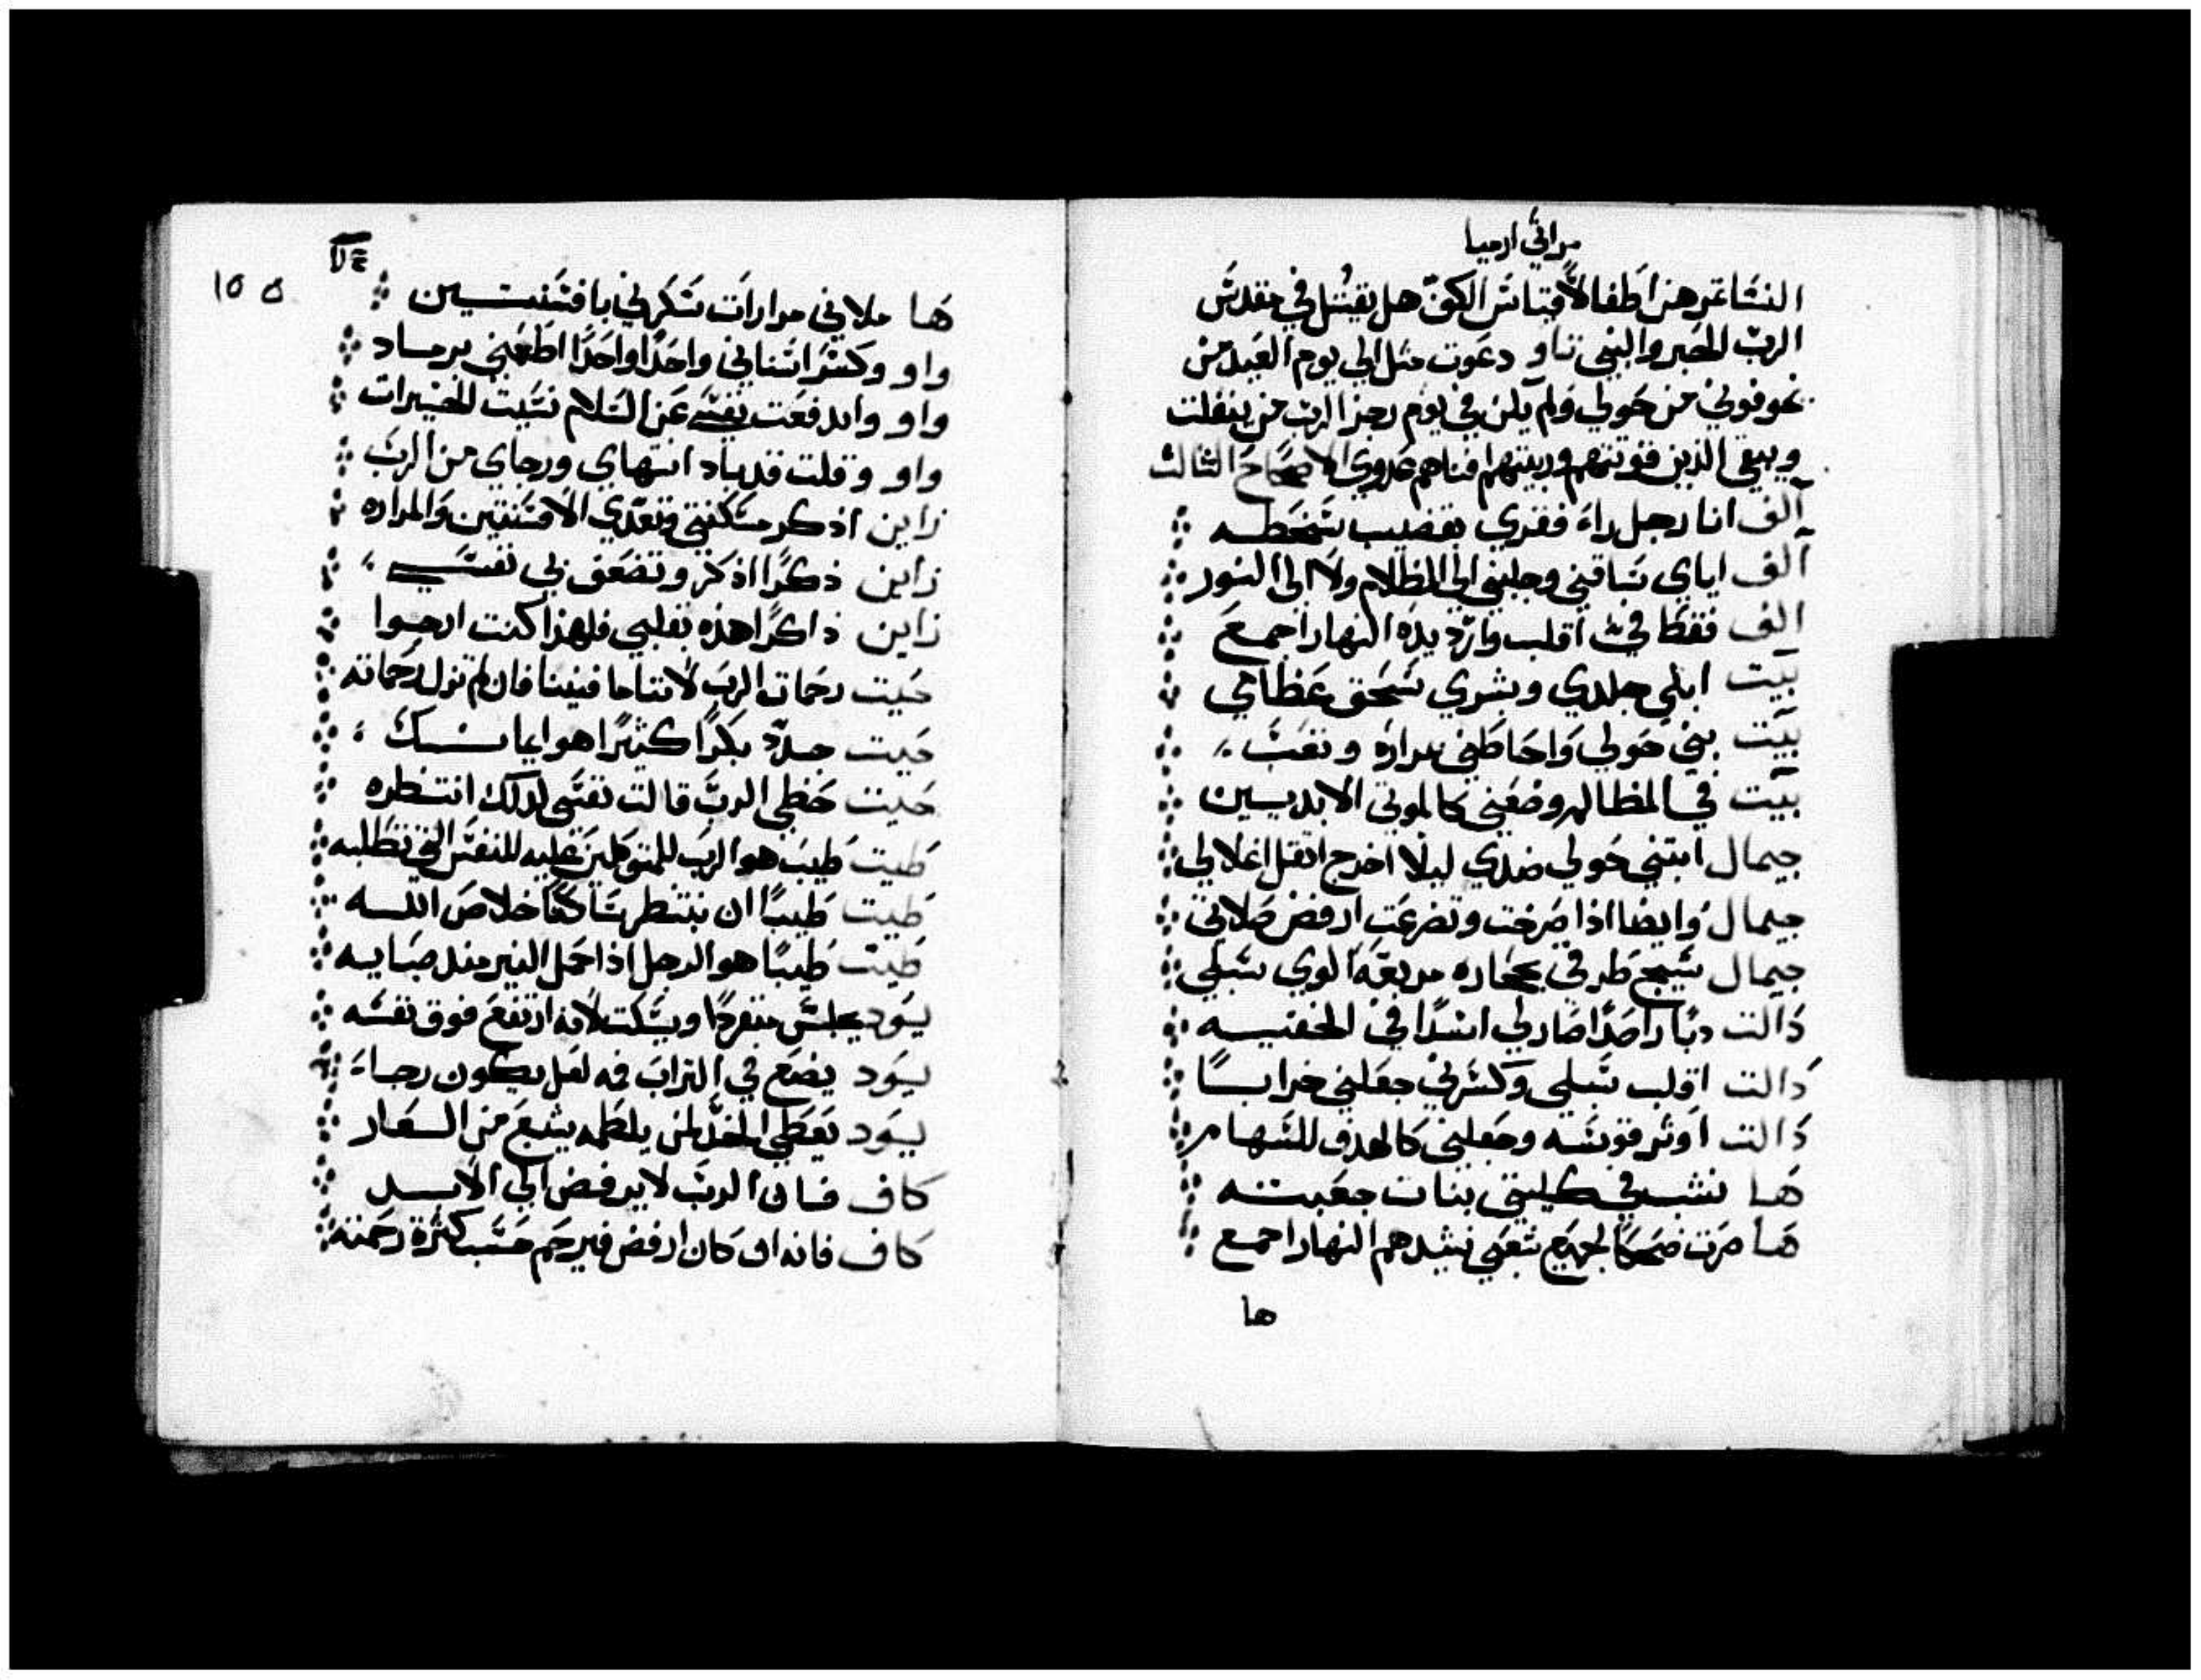 مراثي ارميا
النساء ثمرهن اطفالاً قياس الكف هل يقتل في مقدس
الرب الحبر والنبي تاو دعوت مثل الي يوم العيد من
يخوفوني من حولي ولم يكن في يوم رجز الرب من ينفلت
ويبقي الذين قوتهم وربيتهم افناهم عدوي الاصحاح الثالث
آلف انا رجل راء فقري بقضيب سخطه
آلف اياي ساقني وجلبني الي الظلام ولا الي النور
الف فقط فيّ اقلب وازد يده النهار اجمع
بيت ابلي جلدي وبشري سحق عظامي
بيت بني حولي واحاطني مراره وتعب
بيت في المظالم وضعني كالموتي الابديين
جيمال ابتني حولي ضدي ليلا اخرج اثقل اغلالي
جيمال وايضا اذا صرخت وتضرعت ارفض صلاتي
جيمال سيج طرقي بحجاره مربعه الوي سبلي
دالت دبا راصدا صار لي اسدا في الخفيه
دالت اقلب سبلي وكسرني جعلني خرابا
دالت اوتر قوسه وجعلني كالهدف للسهام
ها نشب في كليتي بنات جعبته
ها صرت ضحكا لجميع شعبي نشيدهم النهار اجمع
ها
١٥٥
ها ملاني مرارات سكرني بافسنتين
واو وكسر اسناني واحدا واحدا اطعمني برماد
واو واندفعت نفسي عن السلام نسيت الخيرات
واو وقلت قد باد انتهاي ورجاي من الرب
زاين اذكر مسكنتي وتعدي الافسنتين والمراره
زاين ذكرا اذكر وتضعف بي نفسي
زاين ذاكرا هذه بقلبي فلهذا كنت ارجوا
حيت رحمات الرب لانناما فنينا فان لم تزل رحماته
حيت جدد بكرا كثيرا هو ايمانك
حيت حظي الرب قالت نفسي لذلك انتظره
طيت طيب هو الرب للمتوكلين عليه للنفس التي تطلبه
طيت طيبا ان ينتظر ساكتا خلاص الله
طيت طيبا هو الرجل اذا حمل النير منذ صبايه
يود يجلس منفردا ويسكت لانه ارتفع فوق نفسه
يود يضع في التراب فه لعل يكون رجاء
يود يعطي الخد لمن يلطمه يشبع من العار
كاف فان الرب لا يرفض الي الابد
كاف فانه ان كان ارفض فيرحم حسب كثرة رحمته